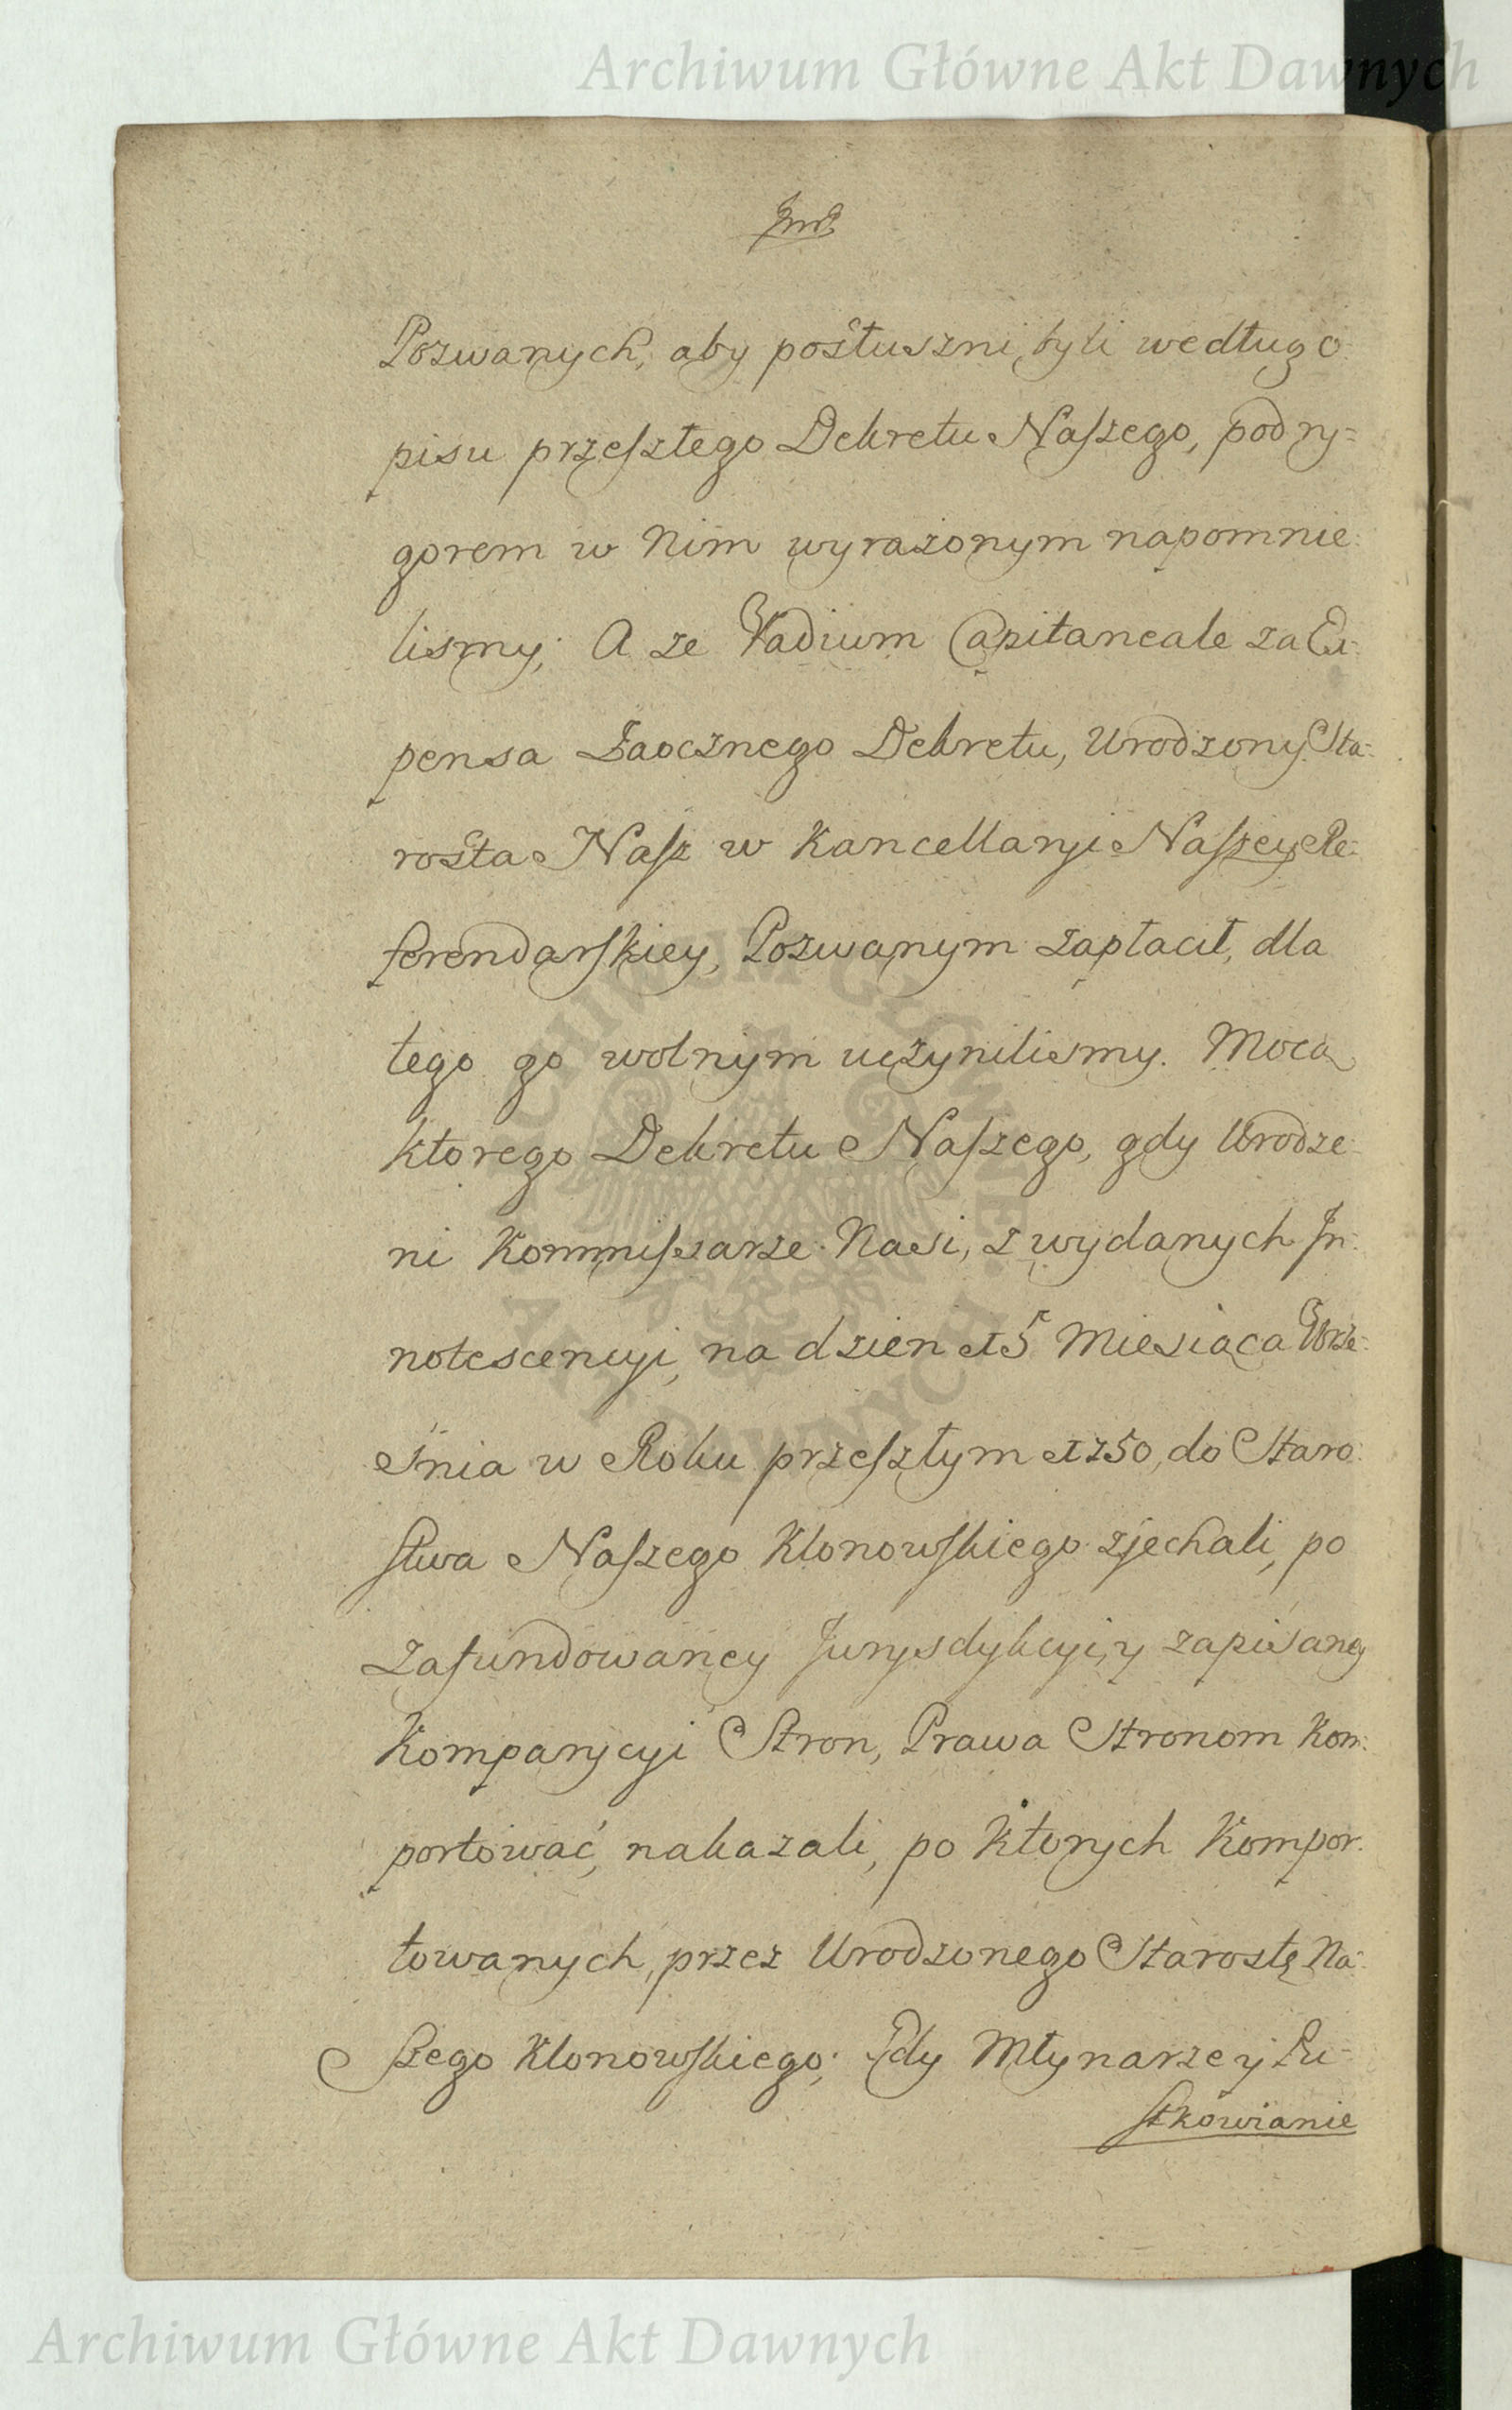 Archiwum Główne Akt Dawnych
Pozwanych, aby posłuszni byli według o:
pisu przeszłego Dekretu Naszego, pod ry=
gorem w Nim wyrażonym napomnie:
lismy; A ze Vadium Capitaneale za Ex:
pensa Zaocznego Dekretu, Urodzony Sta:
rosta Nasz w Kancellaryi Naszey Re:
ferendarskiey, Pozwanym zapłacił, dla
tego go wolnym uczynilismy. Mocą
ktorego Dekretu Naszego, gdy Urodze:
ni Kommissarze Nasi, z wydanych In:
notescencyi, na dzien 15 Miesiąca Wrze:
śnia w Roku przeszłym 1750, do Staro:
stwa Naszego Klonowskiego zjechali, po
zafundowaney Jurysdykcyi, y zapisaney
Komparycyi Stron, Prawa Stronom Kom:
portować, nakazali, po Ktorych Kompor:
towanych, przez Urodzonego Starostę Na:
szego Klonowskiego; Gdy Młynarze y Pu=
stkowianie
ARCHIWUM GŁÓWNE
AKT DAWNYCH
Archiwum Główne Akt Dawnych